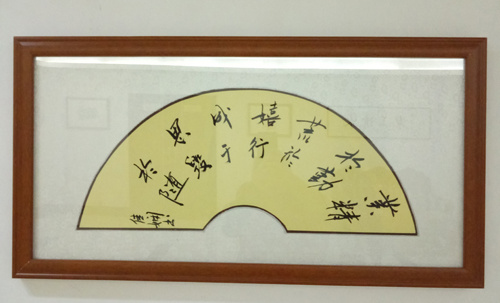 業精
於勤
荒於
嬉行
成于
思毀
於随